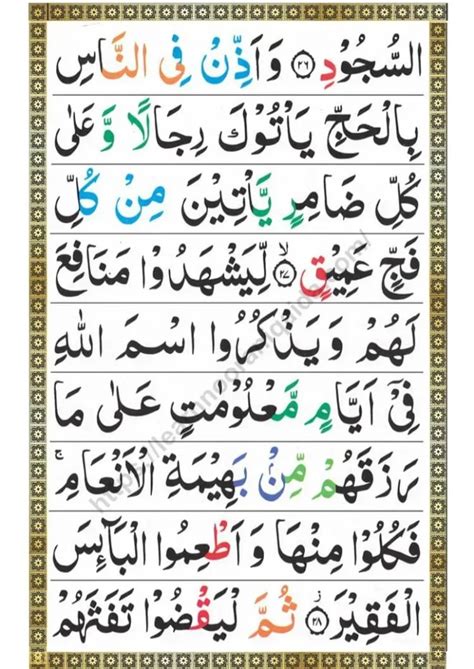 السُّجُوۡدِ ۝۲۶ وَاَذِّنۡ فِى النَّاسِ
بِالۡحَجِّ يَاۡتُوۡكَ رِجَالًا وَّ عَلٰى
كُلِّ ضَامِرٍ يَّاۡتِيۡنَ مِنۡ كُلِّ
فَجٍّ عَمِيۡقٍ ۝۲۷ۙ لِّيَشۡهَدُوۡا مَنَافِعَ
لَهُمۡ وَيَذۡكُرُوا اسۡمَ اللّٰهِ
فِىۡۤ اَيَّامٍ مَّعۡلُوۡمٰتٍ عَلٰى مَا
رَزَقَهُمۡ مِّنۡۢ بَهِيۡمَةِ الۡاَنۡعَامِ‌ۚ
فَكُلُوۡا مِنۡهَا وَاَطۡعِمُوا الۡبَآئِسَ
الۡفَقِيۡرَ ۝۲۸ز ثُمَّ لۡيَقۡضُوۡا تَفَثَهُمۡ